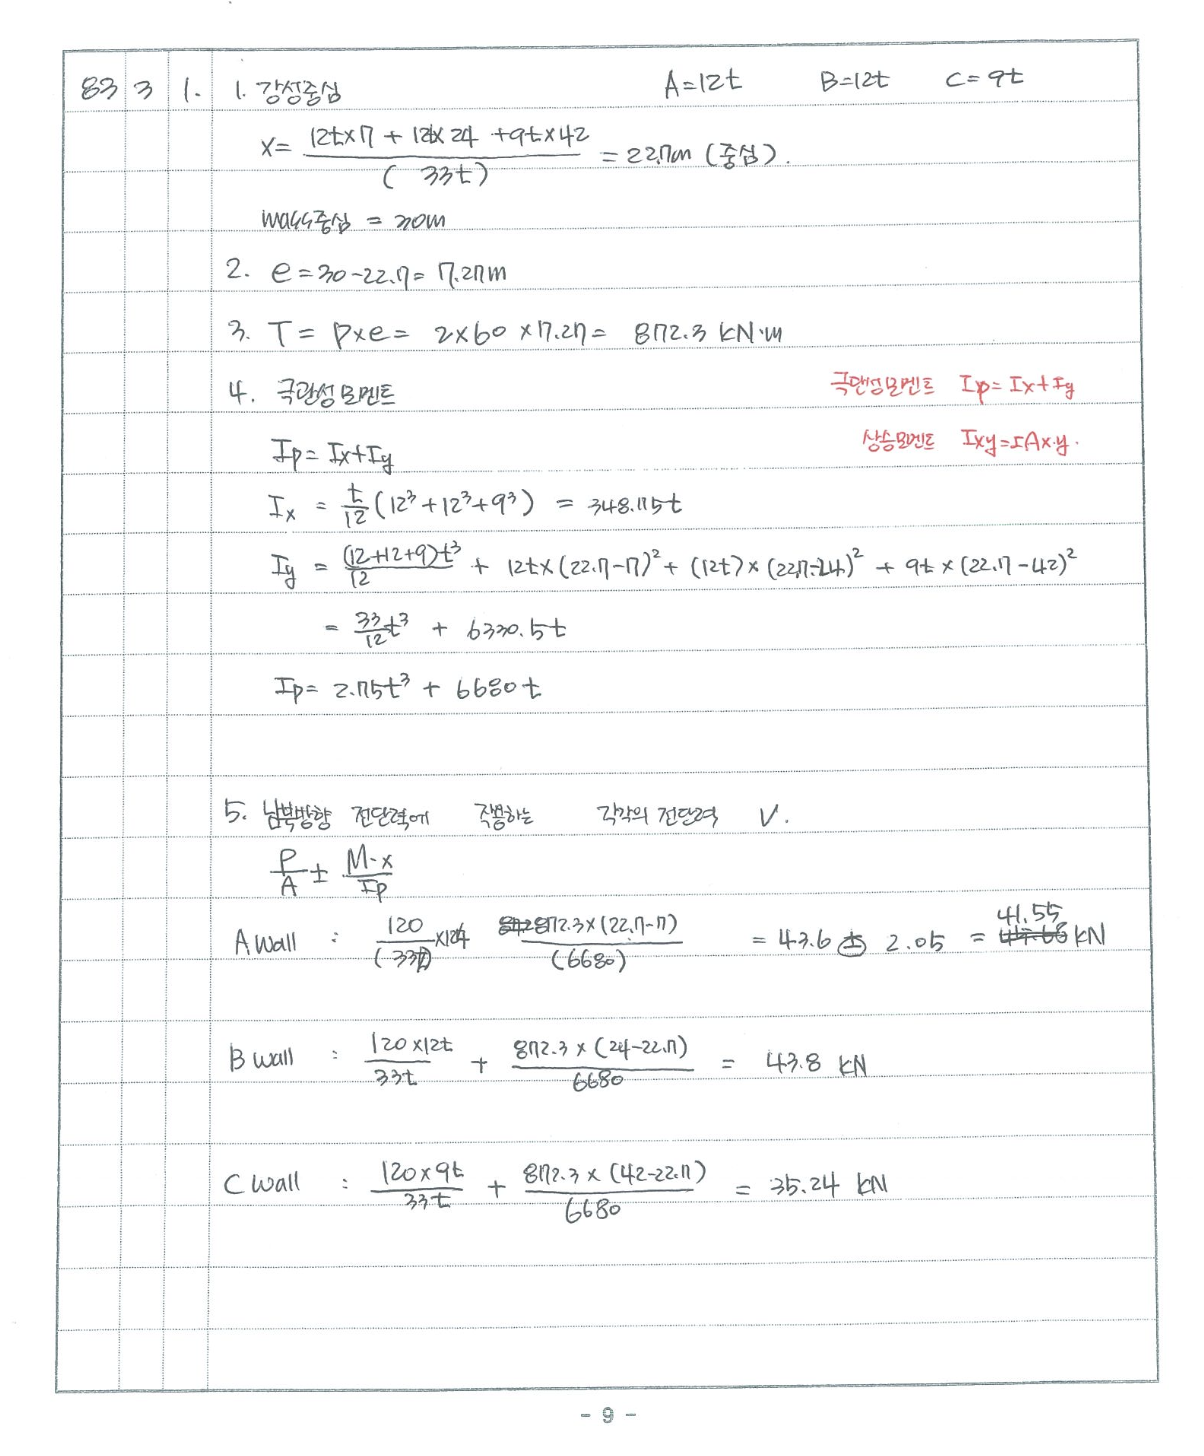 83 3 1. 1. 강성중심 A=12t B=12t C=9t
X= (12t×7 + 12t×24 +9t×42) / ( 33t) = 22.7m (중심).
mass중심 = 30m
2. e=30-22.7= 7.27m
3. T= P×e= 2×60×7.27= 872.3 kN·m
4. 극관성모멘트 극관성모멘트 Ip= Ix+Iy
상승모멘트 Ixy=ΣAx·y.
Ip= Ix+Iy
Ix = t/12 (12³+12³+9³) = 348.75t
Iy = (12+12+9)t³/12 + 12t×(22.7-7)²+ (12t)×(22.7-24)² + 9t×(22.7-42)²
= 33/12 t³ + 6330.5t
Ip= 2.75t³ + 6680t
5. 남북방향 전단력에 작용하는 각각의 전단력 V.
P/A ± M·x/Ip
A wall : 120/(33t) ×12t 872.3×(22.7-7)/(6680) = 43.6 ± 2.05 = 41.55 kN
B wall : 120×12t/33t + 872.3×(24-22.7)/6680 = 43.8 kN
C wall : 120×9t/33t + 872.3×(42-22.7)/6680 = 35.24 kN
- 9 -